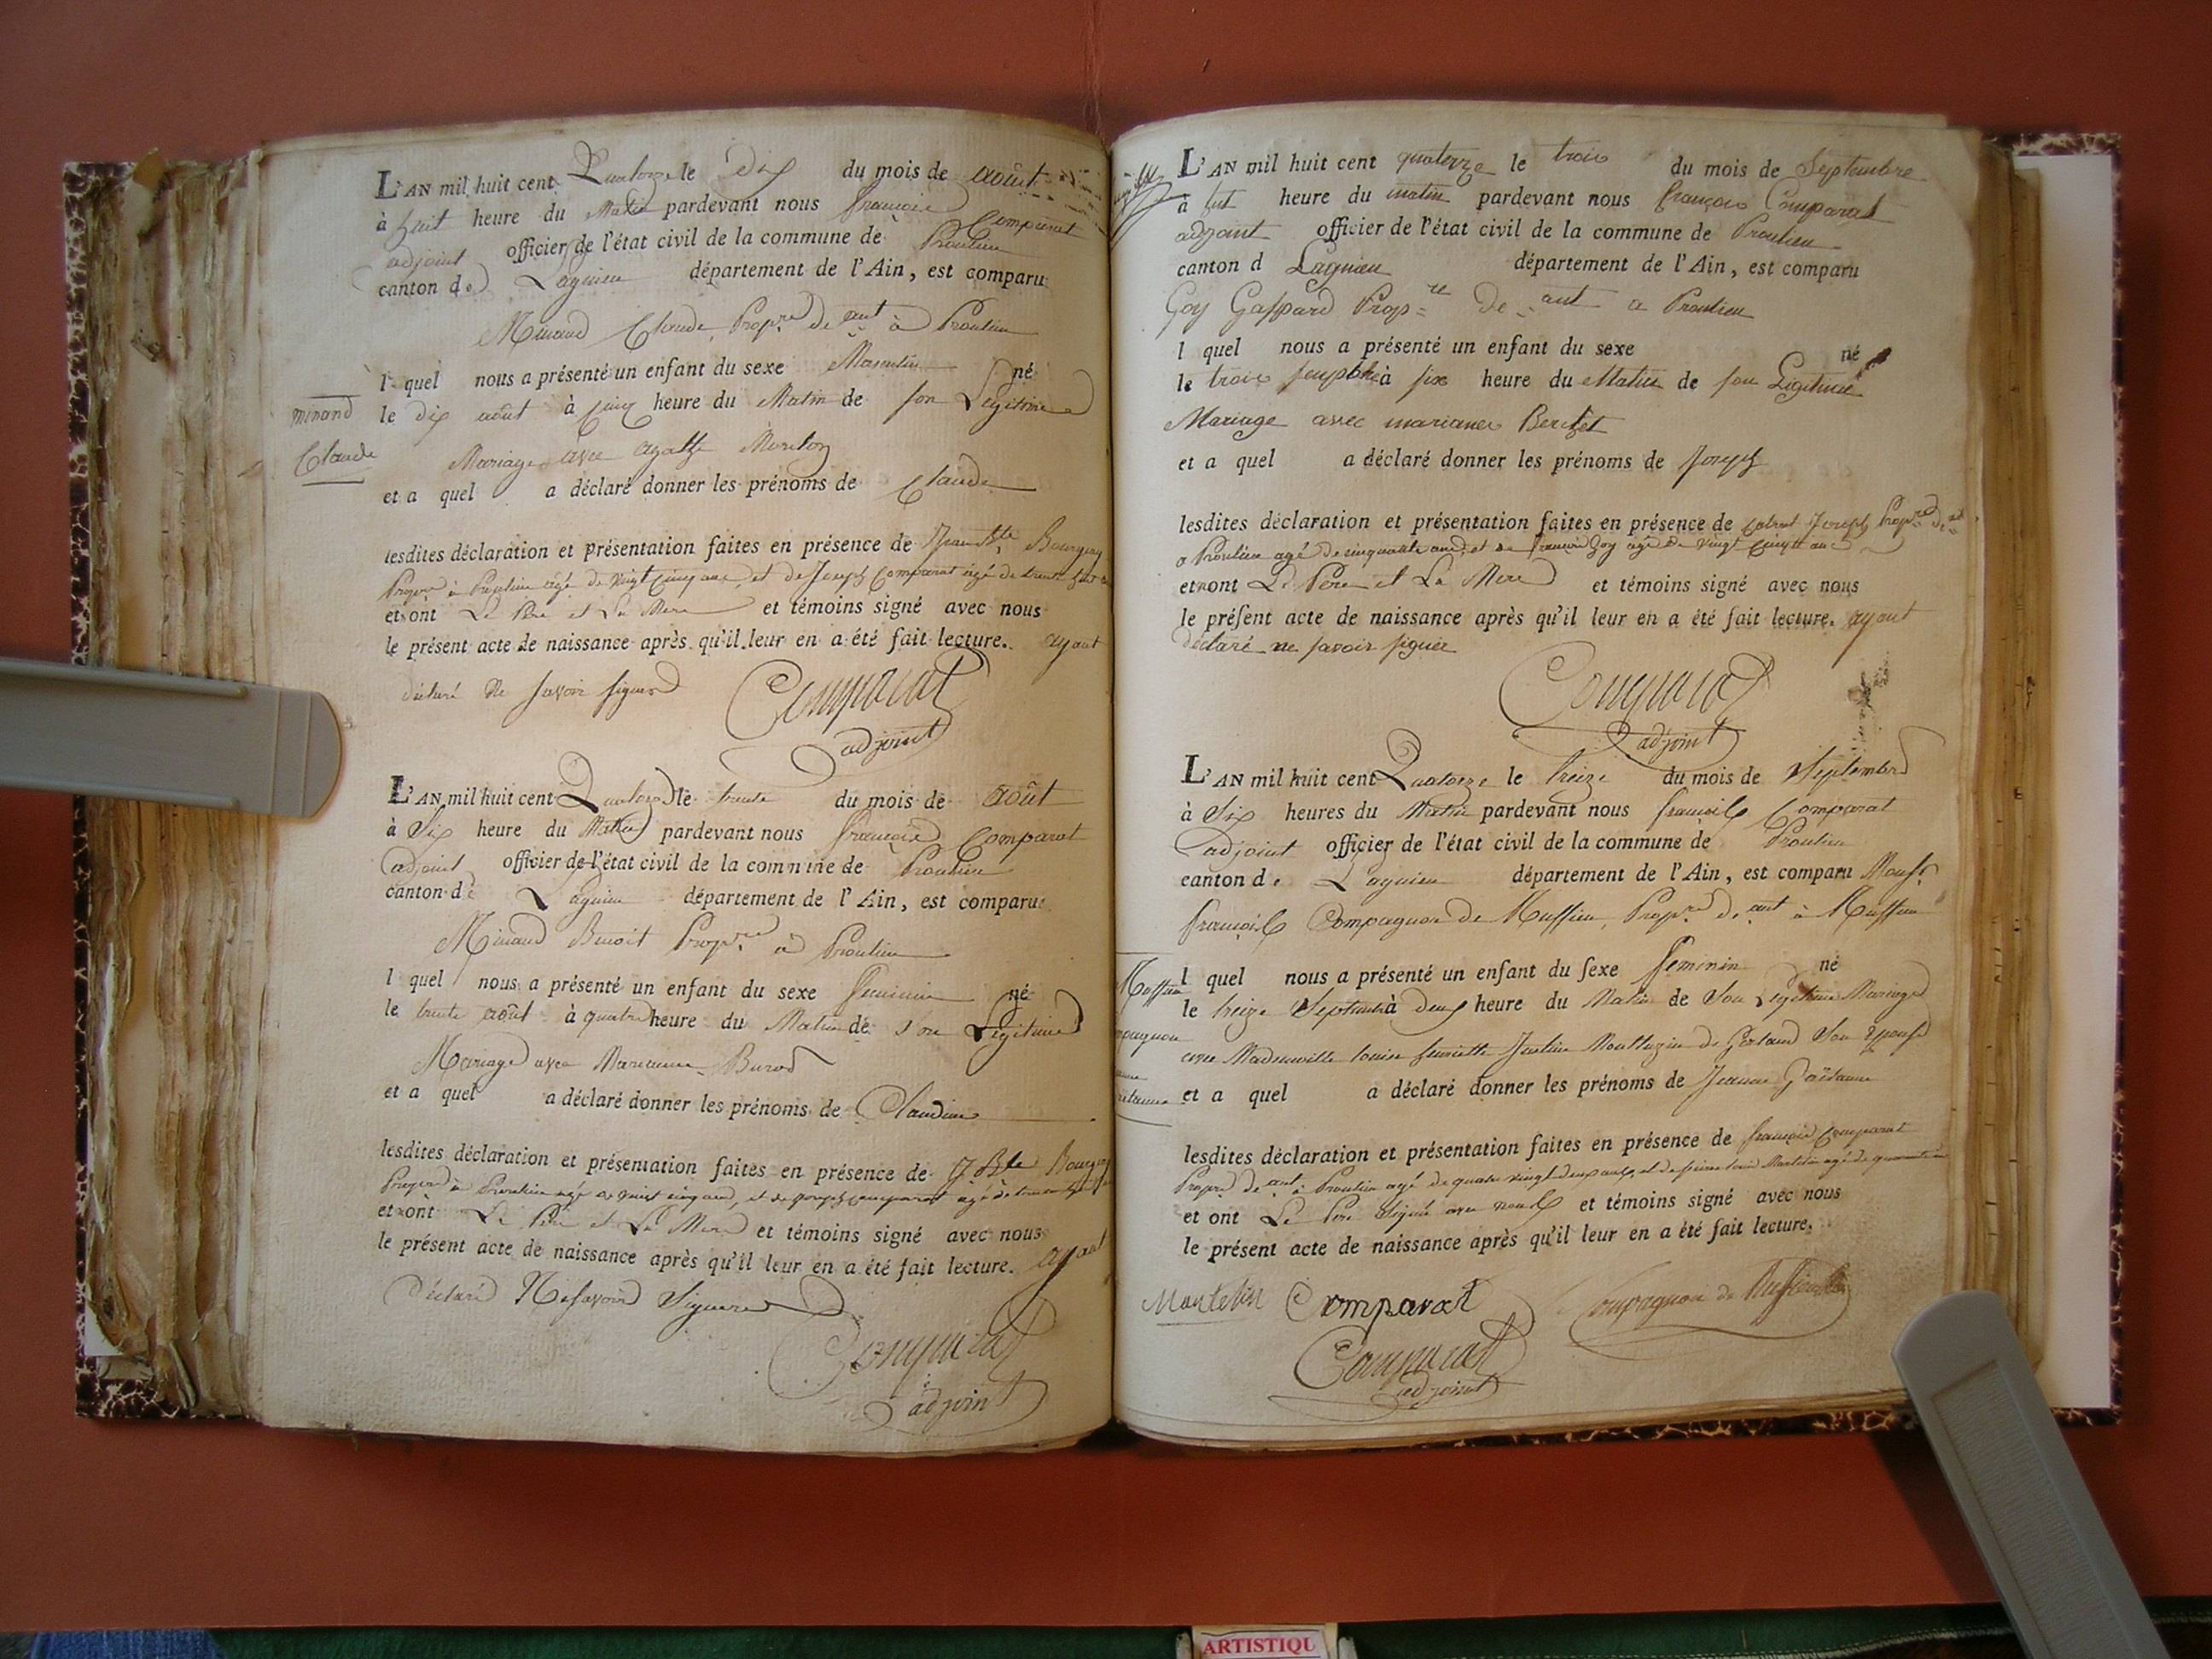 L'AN mil huit cent Quatorze le Dix du mois de août
à huit heure du Matin pardevant nous françois Comparat
adjoint officier de l'état civil de la commune de Proulieu
canton de Lagnieu département de l'Ain, est comparu
Minand Claude, Propre de ant à Proulieu
l quel nous a présenté un enfant du sexe Masculin né
minand
le dix août à cinq heure du Matin de son Légitime
Claude
Mariage avec agathe
et a quel a déclaré donner les prénoms de Claude
lesdites déclaration et présentation faites en présence de
Propre à Proulieu agé de vingt cinq ans, et de Joseph Comparat agé de trente
et ont Le Père et La Mere et témoins signé avec nous
le présent acte de naissance après qu'il leur en a été fait lecture. ayant
déclaré Ne Savoir signer
Comparat
adjoint
L'AN mil huit cent Quatorze le trente du mois de août
à Six heure du Matin pardevant nous françois Comparat
adjoint officier de l'état civil de la commune de Proulieu
canton de Lagnieu département de l'Ain, est comparu
Minand Benoit Propre à Proulieu
l quel nous a présenté un enfant du sexe feminin né
le trente août à quatre heure du Matin de son Légitime
Mariage avec Marianne
et a quel a déclaré donner les prénoms de Claudine
lesdites déclaration et présentation faites en présence de J Bte
Propre à Proulieu agé de vingt cinq ans, et de joseph comparat agé de
et ont Le Père et La Mere et témoins signé avec nous
le présent acte de naissance après qu'il leur en a été fait lecture. ayant
Déclaré Ne savoir Signer
Comparat
adjoint
L'AN mil huit cent quatorze le trois du mois de Septembre
à heure du matin pardevant nous françois Comparat
adjoint officier de l'état civil de la commune de Proulieu
canton d Lagnieu département de l'Ain, est comparu
Goy Gaspard Propre De ant a Proulieu
l quel nous a présenté un enfant du sexe né
le trois à six heure du Matin de son Légitime
Mariage avec marianne Berthet
et a quel a déclaré donner les prénoms de Joseph
lesdites déclaration et présentation faites en présence de Joseph Propre
a Proulieu agé de cinquante ans, et de francois Goy agé de vingt cinq ans
et ont Le Père et La Mere et témoins signé avec nous
le présent acte de naissance après qu'il leur en a été fait lecture. ayant
déclaré ne savoir signer
Comparat
adjoint
L'AN mil huit cent Quatorze le treize du mois de Septembre
à Six heures du Matin pardevant nous françois Comparat
adjoint officier de l'état civil de la commune de Proulieu
canton de Lagnieu département de l'Ain, est comparu Monsr
françois Compagnon de Ruffieu, Propre de ant à Ruffieu
l quel nous a présenté un enfant du sexe feminin né
le treize Septembre à deux heure du Matin de Son Légitime Mariage
avec Mademoiselle louise henriette Justine de Son Epouse
et a quel a déclaré donner les prénoms de Jeanne Gaëtanne
lesdites déclaration et présentation faites en présence de françois Comparat
Propre de ant à Proulieu agé de quatre vingt deux ans, et de pierre louis Mantelin agé de quarante
et ont Le Père Signé avec nous et témoins signé avec nous
le présent acte de naissance après qu'il leur en a été fait lecture.
Mantelin Comparat Compagnon de Ruffieu
Comparat
adjoint
ARTISTIQU